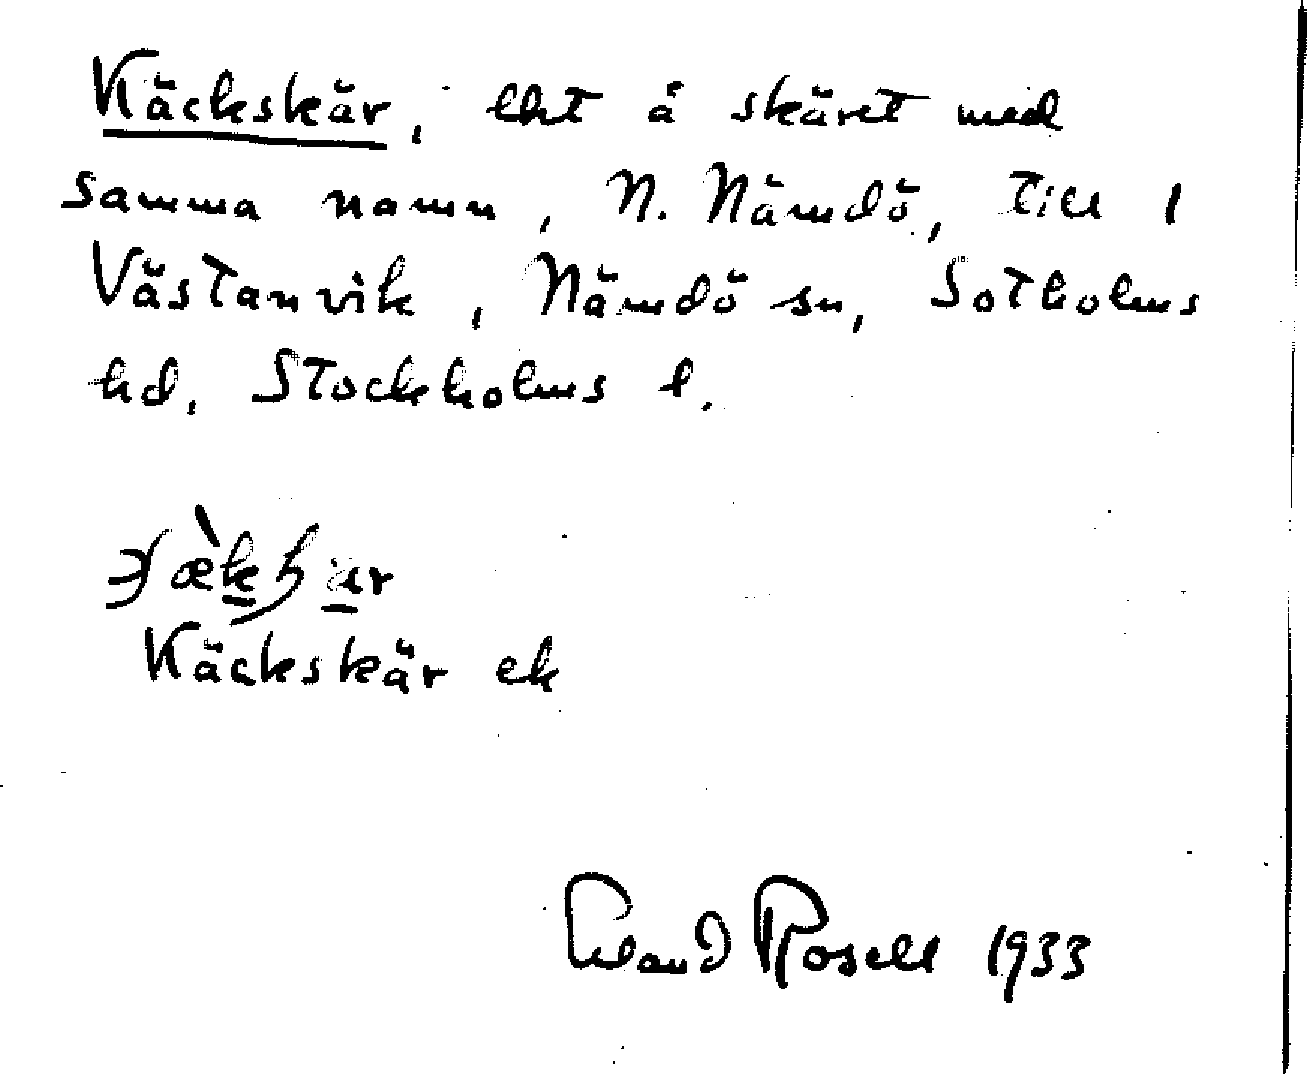 Käckskär, lht å skäret med
samma namn, N. Nämdö, till 1
Västanvik, Nämdö sn, Sotholms
hd, Stockholms l.
Käckskär ek
Erland Rosell 1933